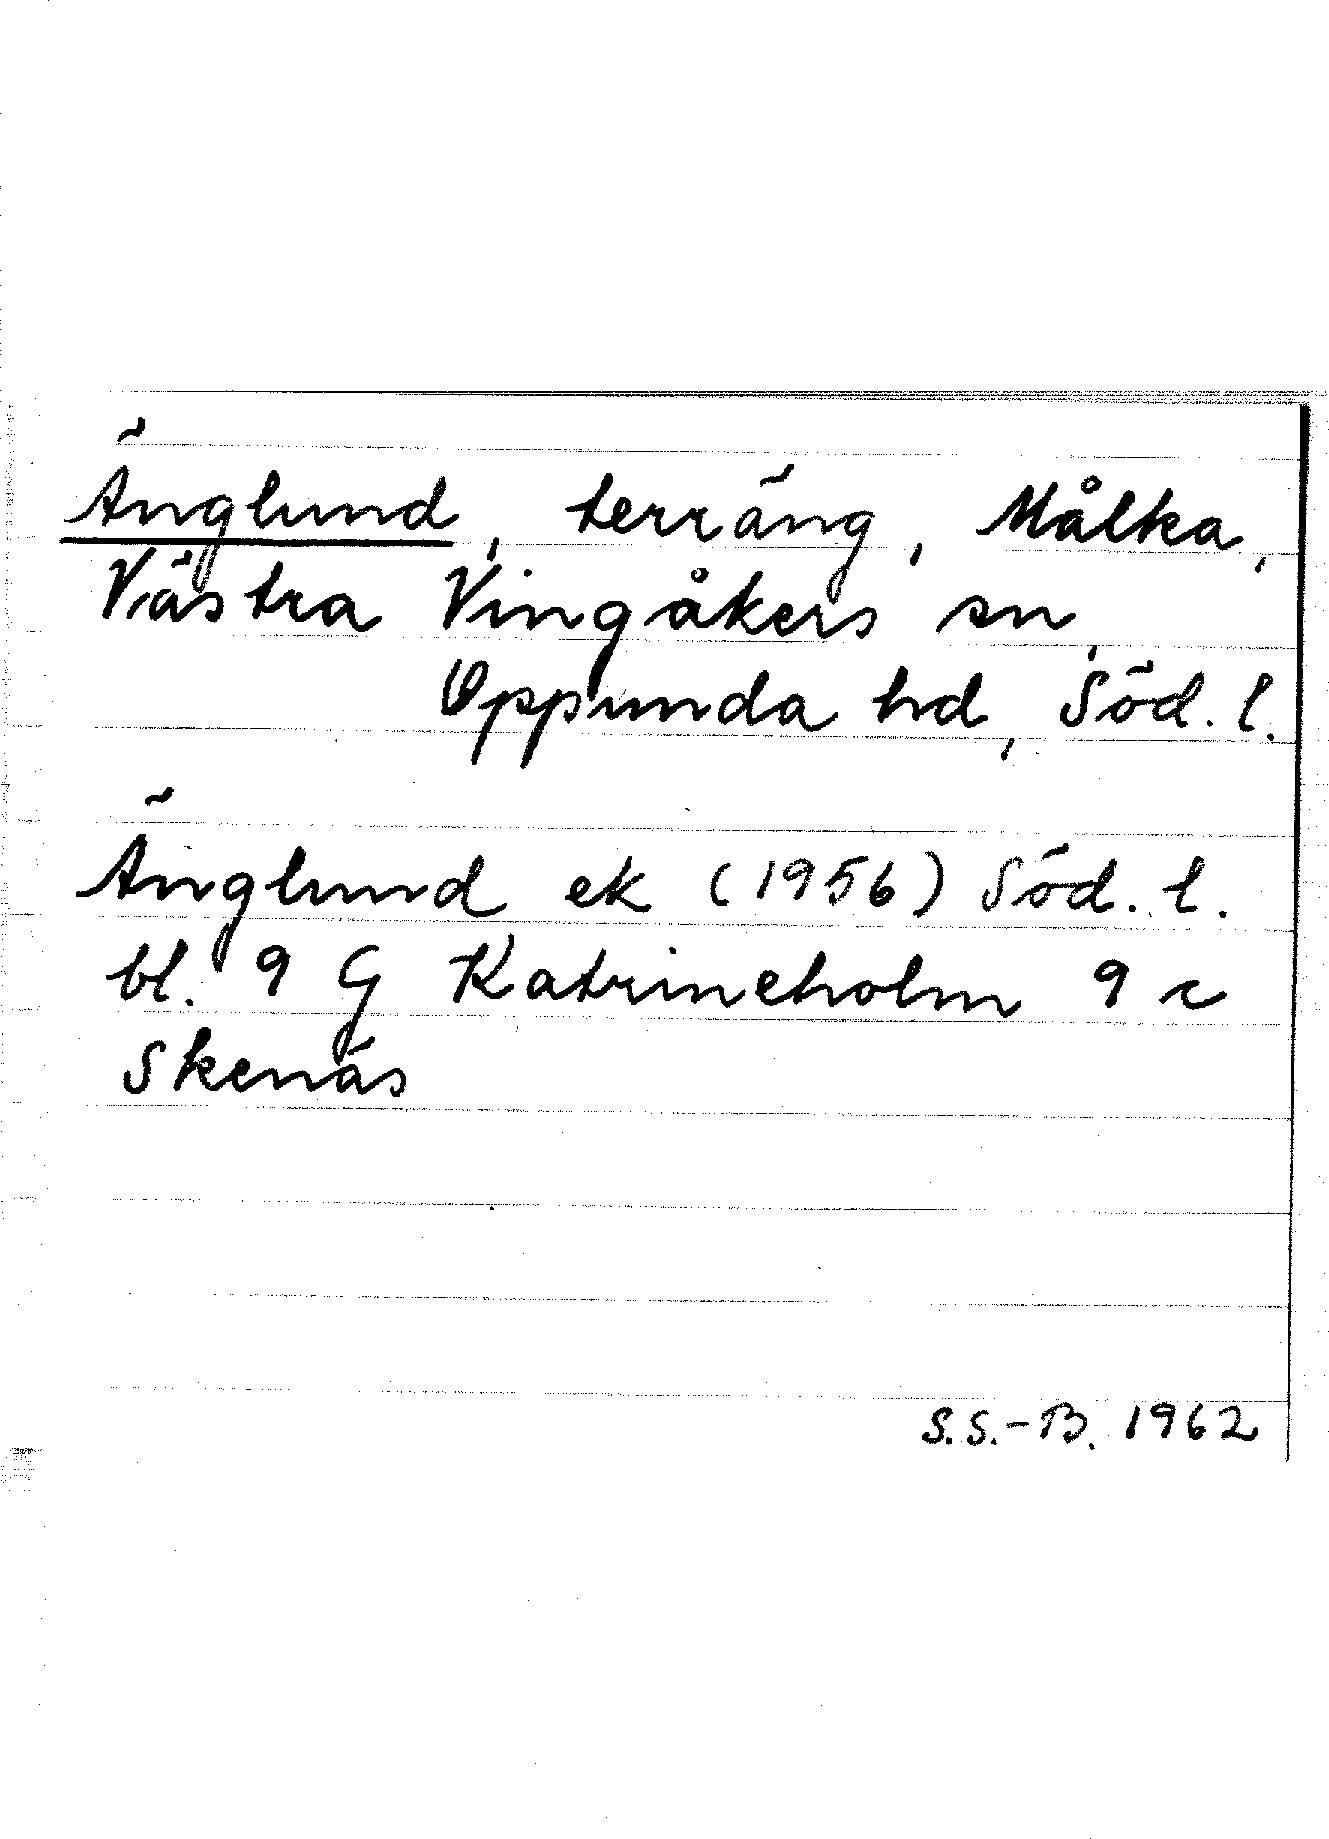 Änglund, terräng, Målka,
Västra Vingåkers sn,
Oppunda hd, Söd. l.
Änglund ek (1956) Söd. l.
bl. 9 G Katrineholm 9 c
Skenäs
S.S.-B. 1962